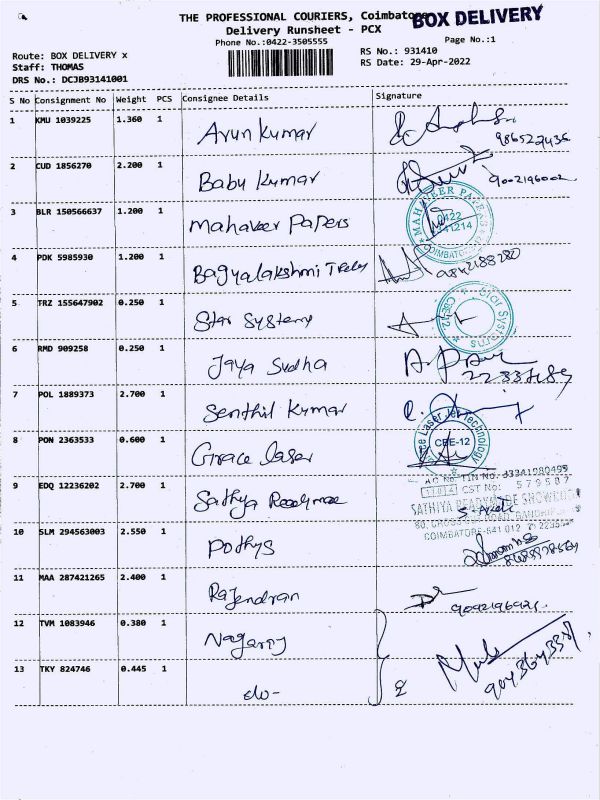 THE PROFESSIONAL COURIERS, Coimbatore
BOX DELIVERY
Delivery Runsheet - PCX
Phone No.:0422-3505555
Page No.:1
Route: BOX DELIVERY x
RS No.: 931410
Staff: THOMAS
RS Date: 29-Apr-2022
DRS No.: DCJB93141001
S No Consignment No Weight PCS Consignee Details Signature
1 KMU 1039225 1.360 1 Arun Kumar
2 CUD 1856270 2.200 1 Babu Kumar
3 BLR 150566637 1.200 1 Mahaveer Papers
4 PDK 5985930 1.200 1 Bagyalakshmi
5 TRZ 155647902 0.250 1 Star Systems
Star Systems
CBE-12
6 RMD 909258 0.250 1 Jaya Sudha
7 POL 1889373 2.700 1 Senthil Kumar
8 PON 2363533 0.600 1 Grace Laser
CBE-12
9 EDQ 12236202 2.700 1 Sathya
SATHIYA READYMADE SHOWROOM
COIMBATORE-641 012
10 SLM 294563003 2.550 1 Pothys
11 MAA 287421265 2.400 1 Rajendran
12 TVM 1083946 0.380 1 Nagaraj
13 TKY 824746 0.445 1 -do-